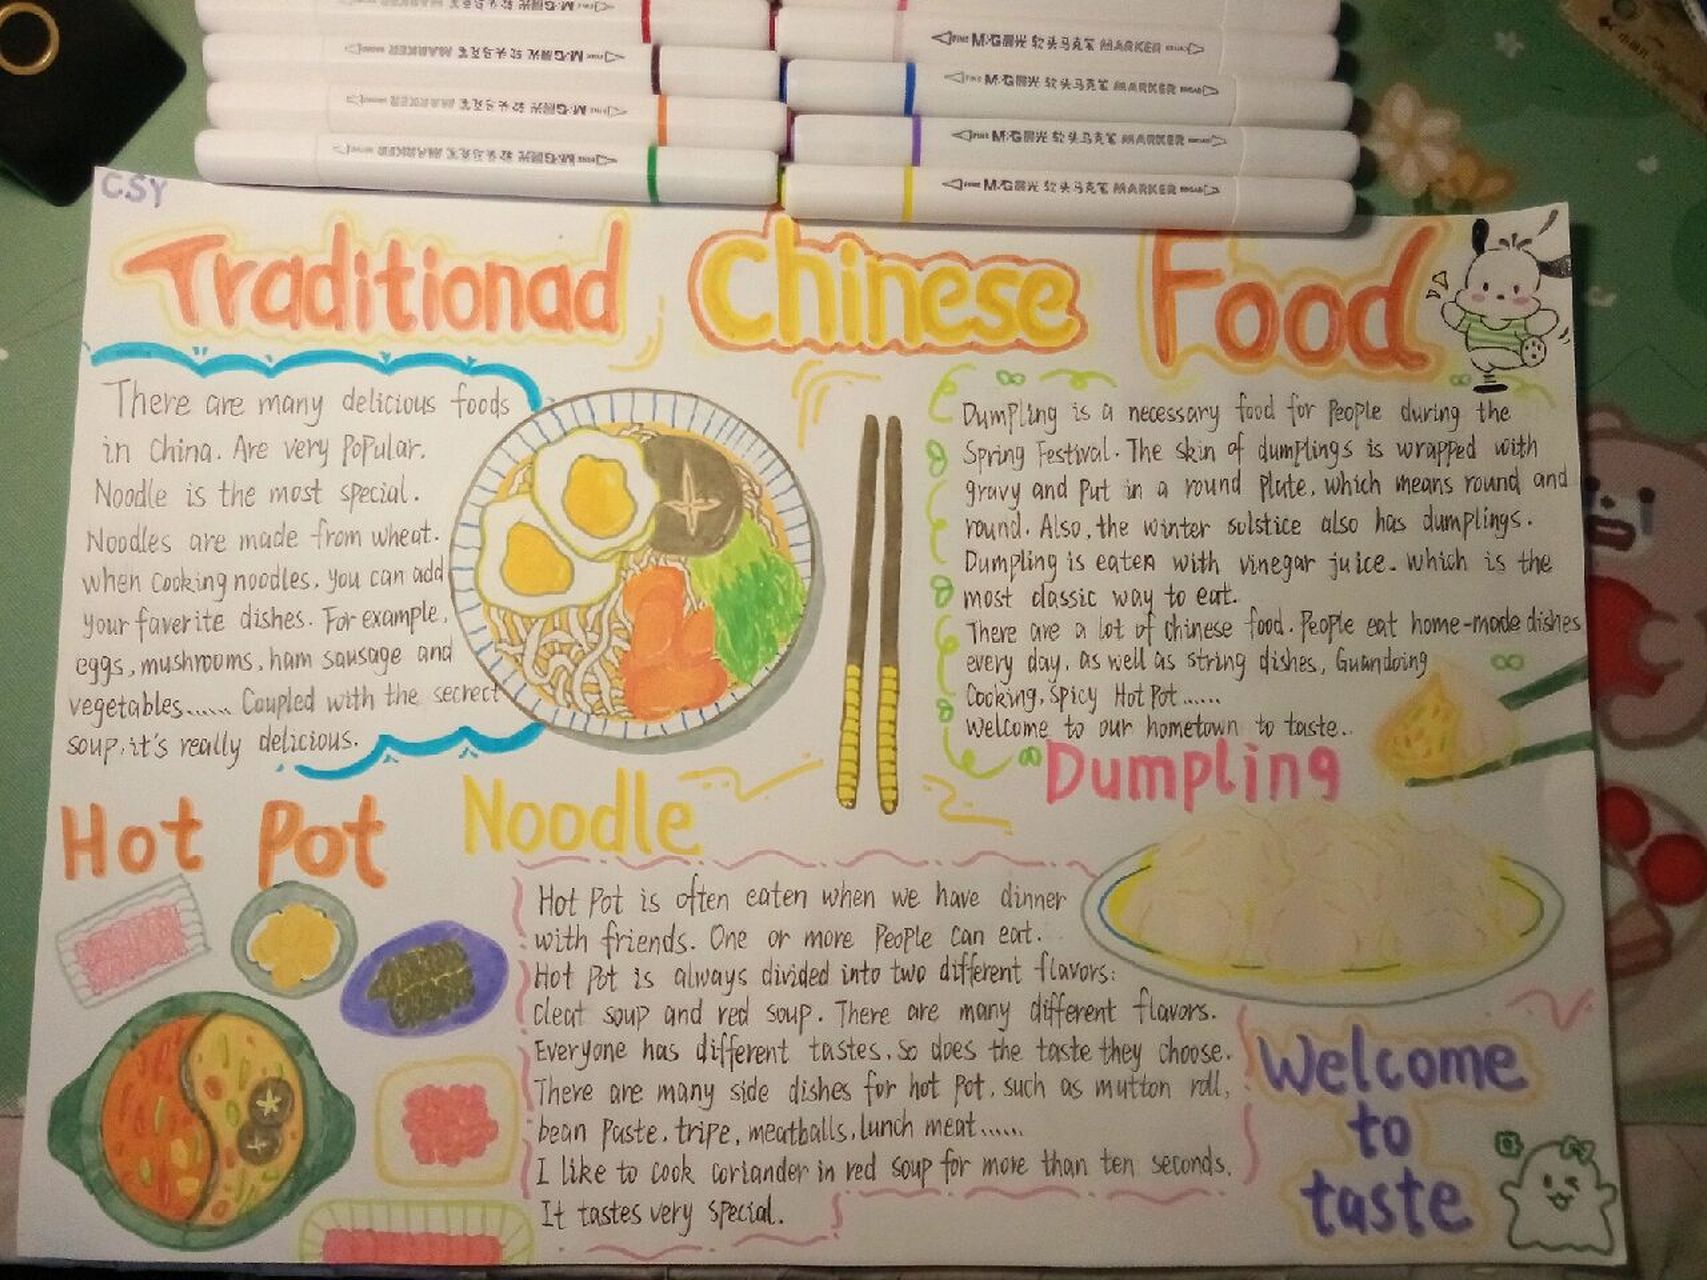 M&G晨光 软头马克笔 MARKER
M&G晨光 软头马克笔 MARKER
M&G晨光 软头马克笔 MARKER
M&G晨光 软头马克笔 MARKER
M&G晨光 软头马克笔 MARKER
M&G晨光 软头马克笔 MARKER
M&G晨光 软头马克笔 MARKER
M&G晨光 软头马克笔 MARKER
CSY
Traditionad Chinese Food
There are many delicious foods
in China. Are very Popular.
Noodle is the most special.
Noodles are made from wheat.
when cooking noodles, you can add
your faverite dishes. For example,
eggs, mushrooms, ham sausage and
vegetables...... Coupled with the secrect
soup, it's really delicious.
Noodle
Dumpling is a necessary food for People during the
Spring Festival. The skin of dumplings is wrapped with
gravy and Put in a round Plate, which means round and
round. Also, the winter solstice also has dumplings.
Dumpling is eaten with vinegar juice. which is the
most classic way to eat.
There are a lot of Chinese food. People eat home-made dishes
every day, as well as string dishes, Guandong
Cooking, Spicy Hot Pot......
Welcome to our hometown to taste..
Dumpling
Hot Pot
Hot Pot is often eaten when we have dinner
with friends. One or more People can eat.
Hot Pot is always divided into two different flavors:
cleat soup and red soup. There are many different flavors.
Everyone has different tastes. So does the taste they choose.
There are many side dishes for hot Pot, such as mutton roll,
bean Paste, tripe, meatballs, lunch meat......
I like to cook coriander in red soup for more than ten seconds.
It tastes very special.
Welcome
to
taste